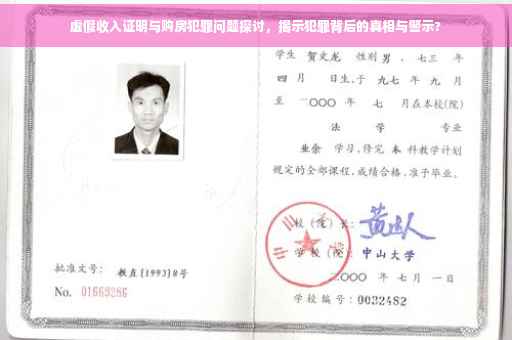 虚假收入证明与购房犯罪问题探讨，揭示犯罪背后的真相与警示?
学生 贺文龙 性别 男 、七三 年
四 月 日生,于 九七 年 九 月
至 二〇〇〇 年 七 月在本校(院)
法 学 专业
业余 学习,修完 本 科教学计划
规定的全部课程,成绩合格,准予毕业。
校 (院) 长:
学 校 (院): 中山大学
二〇〇〇 年 七 月 一 日
批准文号: 教直[1993]8号
No. 01669286
学校编号: 0032482